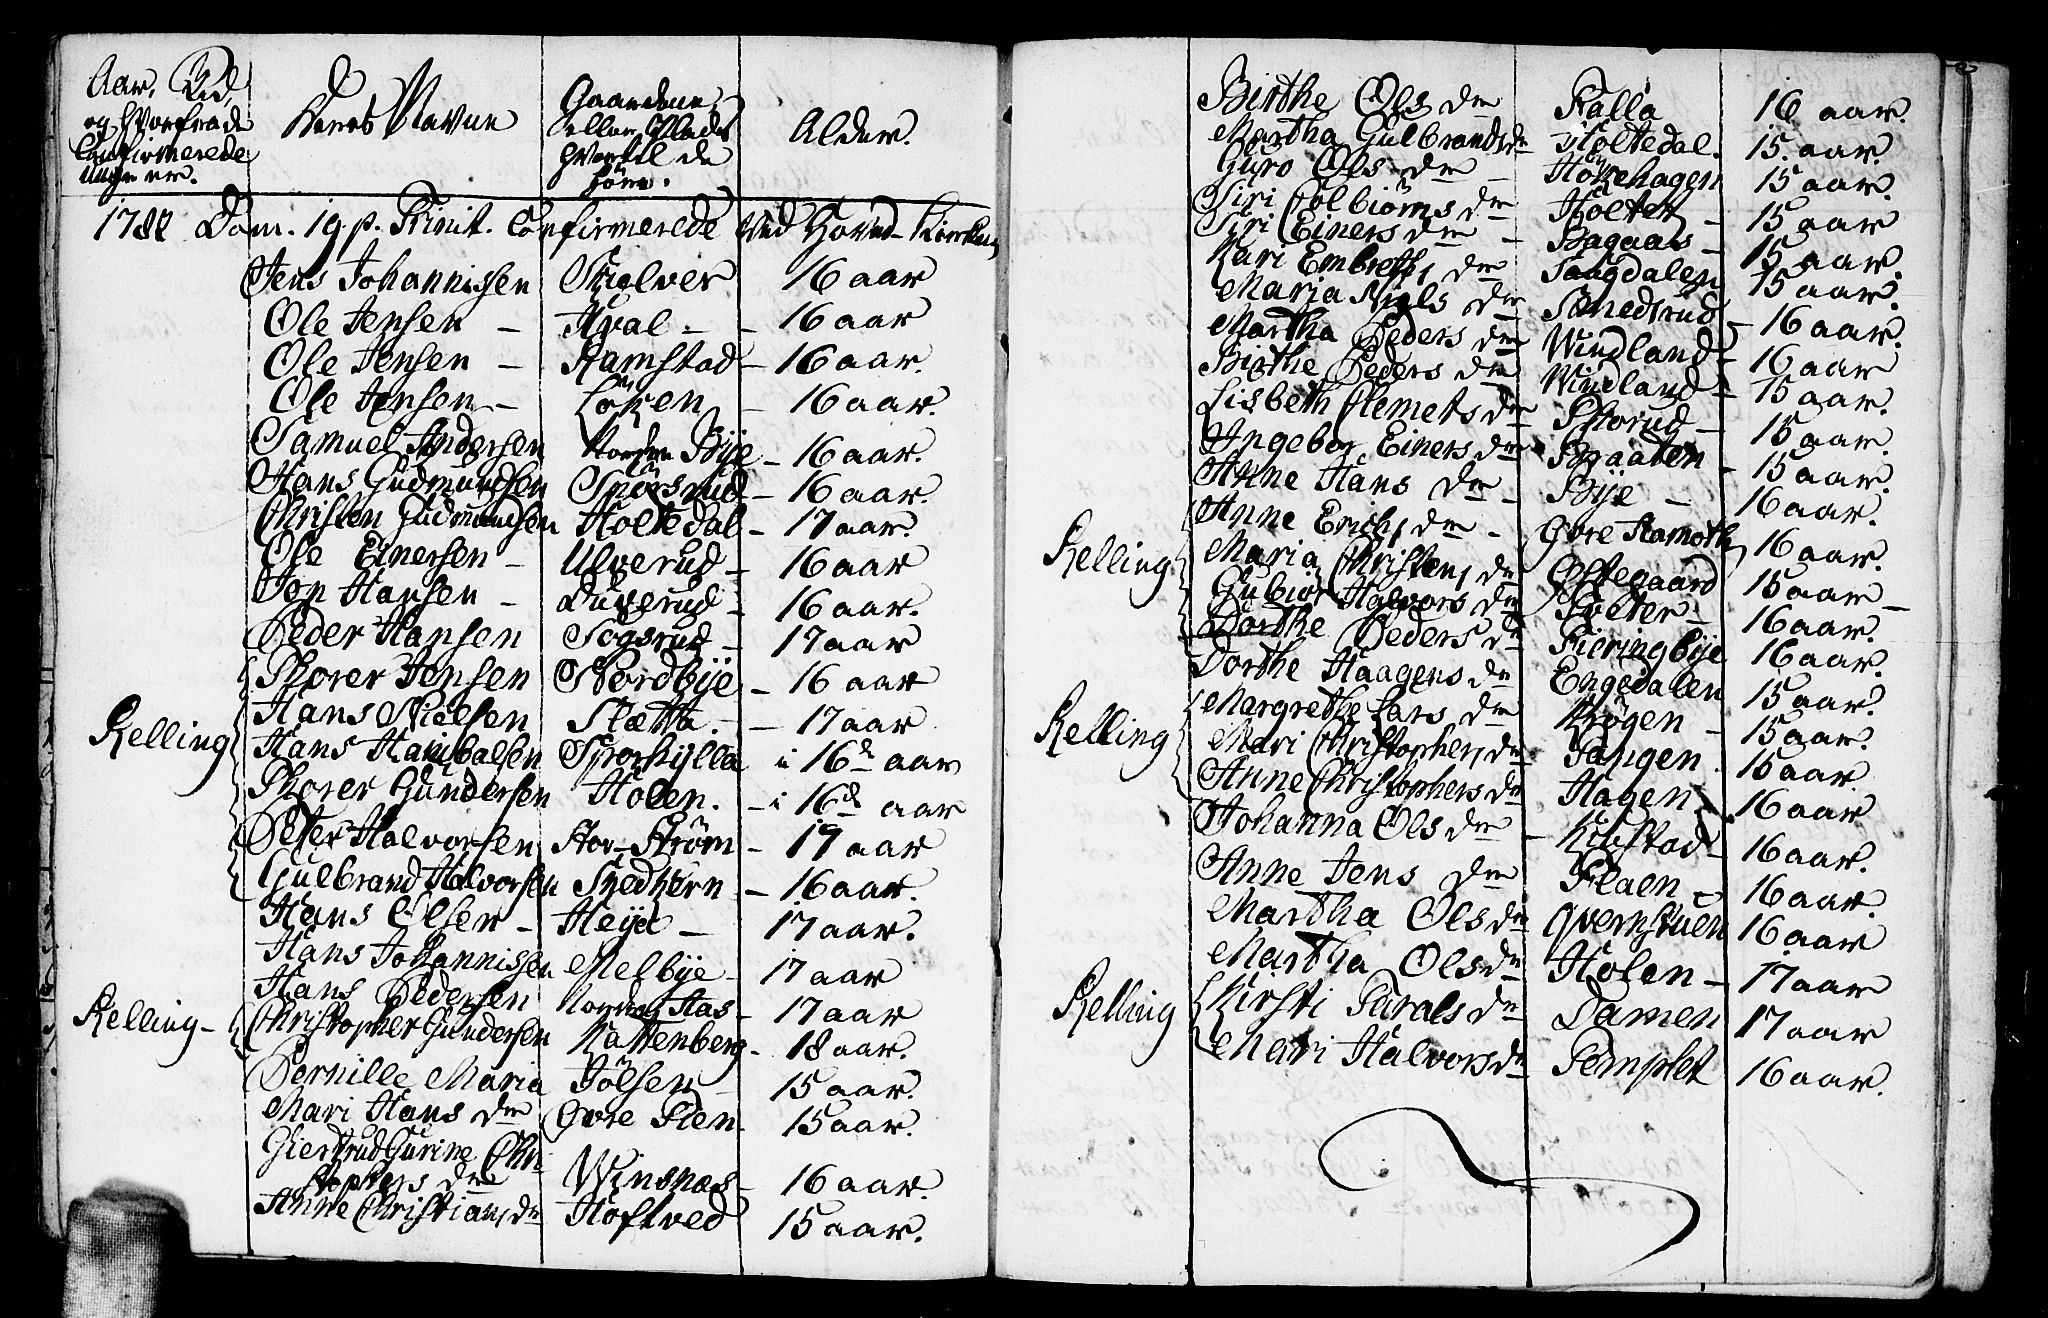 Aar, Tid,
og hvorfra de
Confirmerede
unge ere.
Deres Navne
Gaardene
eller Pladse
hvortil de
høre.
Alder.
1787 Dom. 19. p. Trinit. Confirmerede ved Hoved-Kirken
Jens Johannissen Skiolver 16 aar
Ole Jensen - Hval - - 16 aar
Ole Jensen - Ramstad - 16 aar
Ole Jensen - Löken - 16 aar.
Samuel Andersen Norden Bÿe - 16 aar.
Hans Gudmundsen Snörsrud - 16 aar.
Christen Gudmundsen Holtedal - 17 aar.
Ole Einersen - Ulverud - 16 aar
Jon Hansen - Duserud - 16 aar.
Peder Hansen Sogsrud - 17 aar
Thorer Jensen Nordbÿe - 16 aar
Hans Nielsen Slætta - - 17 aar
Relling
Hans Hanibalsen Sprorhylla i 16d aar
Thorer Gundersen Holen. - i 16d aar
Peter Halvorsen Stor-Strøm - 19 aar
Gulbrand Halvorsen Snedkern - 16 aar.
Hans Olsen - Heÿa - 17 aar.
Hans Johannissen Melbÿe - 17 aar
Hans Pedersen Nordre Aas - 17 aar
Relling - Christopher Gundersen Kattenberg - 18 aar.
Pernille Maria Jölsen - 15 aar.
Mari Hans dn Øvre Steen - 15 aar.
Giertrud Gurine Chri-
stophers dn Winsnæs - 16 aar.
Anne Christians dn Hoftved 15 aar.
Birthe Ols dn Talla 16 aar.
Martha Gulbrands dn Holtedal. 15. aar.
Guro Ols dn - Hökehagen 15 aar.
Siri Colbiörns dn Holter - 15 aar
Siri Einers dn - Bagaas - 15 aar.
Kari Embrets dn Saugdalen 15 aar.
Maria Niels dn Smedsrud - 16 aar.
Martha Peders dn Windland - 16 aar
Birthe Peders dn Windland - 15 aar.
Lisbeth Clemets dn Skorud - 15 aar.
Ingebor Einers dn Braaten - 15 aar.
Anne Hans dn - Bÿe - 16 aar.
Anne Erichs dn - Øvre Hamoth 16 aar.
Relling
Maria Christens dn Østegaard 15 aar -
Gubiör Halvors dn Sæter - 16 aar.
Dorthe Peders dn Fieringbÿe 16 aar.
Dorthe Haagens dn Engedalen 15 aar.
Margrethe Lars dn Krogen - 15 aar.
Relling
Mari Christophers dn Tangen. 15 aar.
Anne Christophers dn Hagen 16 aar
Johanna Ols dn - Kiustad - 16 aar.
Anne Jens dn Flaen - 16 aar.
Martha Ols dn Qvernstuen 16 aar
Martha Ols dn Holen - 17 aar
Relling
Kirsti Tarals dn Damen 17 aar
Mari Halvors dn Templet 16 aar.